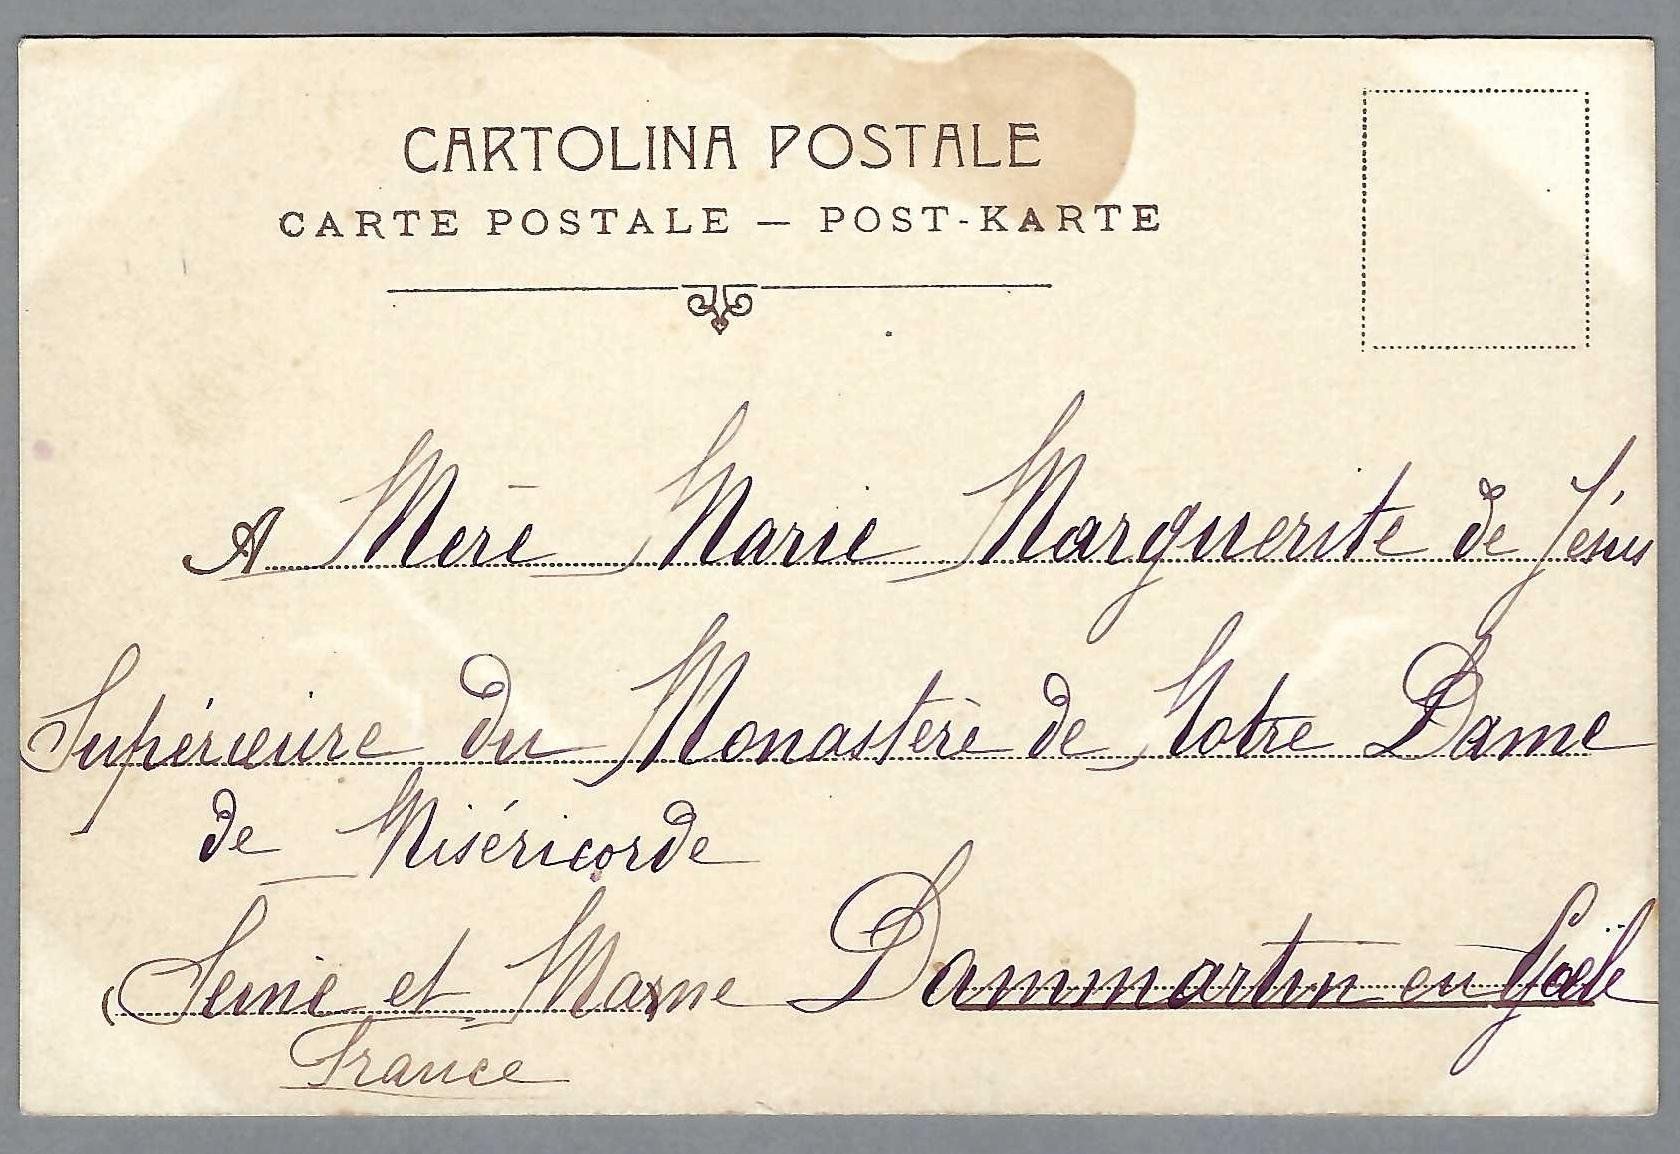 CARTOLINA POSTALE
CARTE POSTALE — POST-KARTE
A Mère Marie Marguerite de Jésus
Supérieure du Monastère de Notre Dame
de Miséricorde
Seine et Marne Dammartin en Goële
France